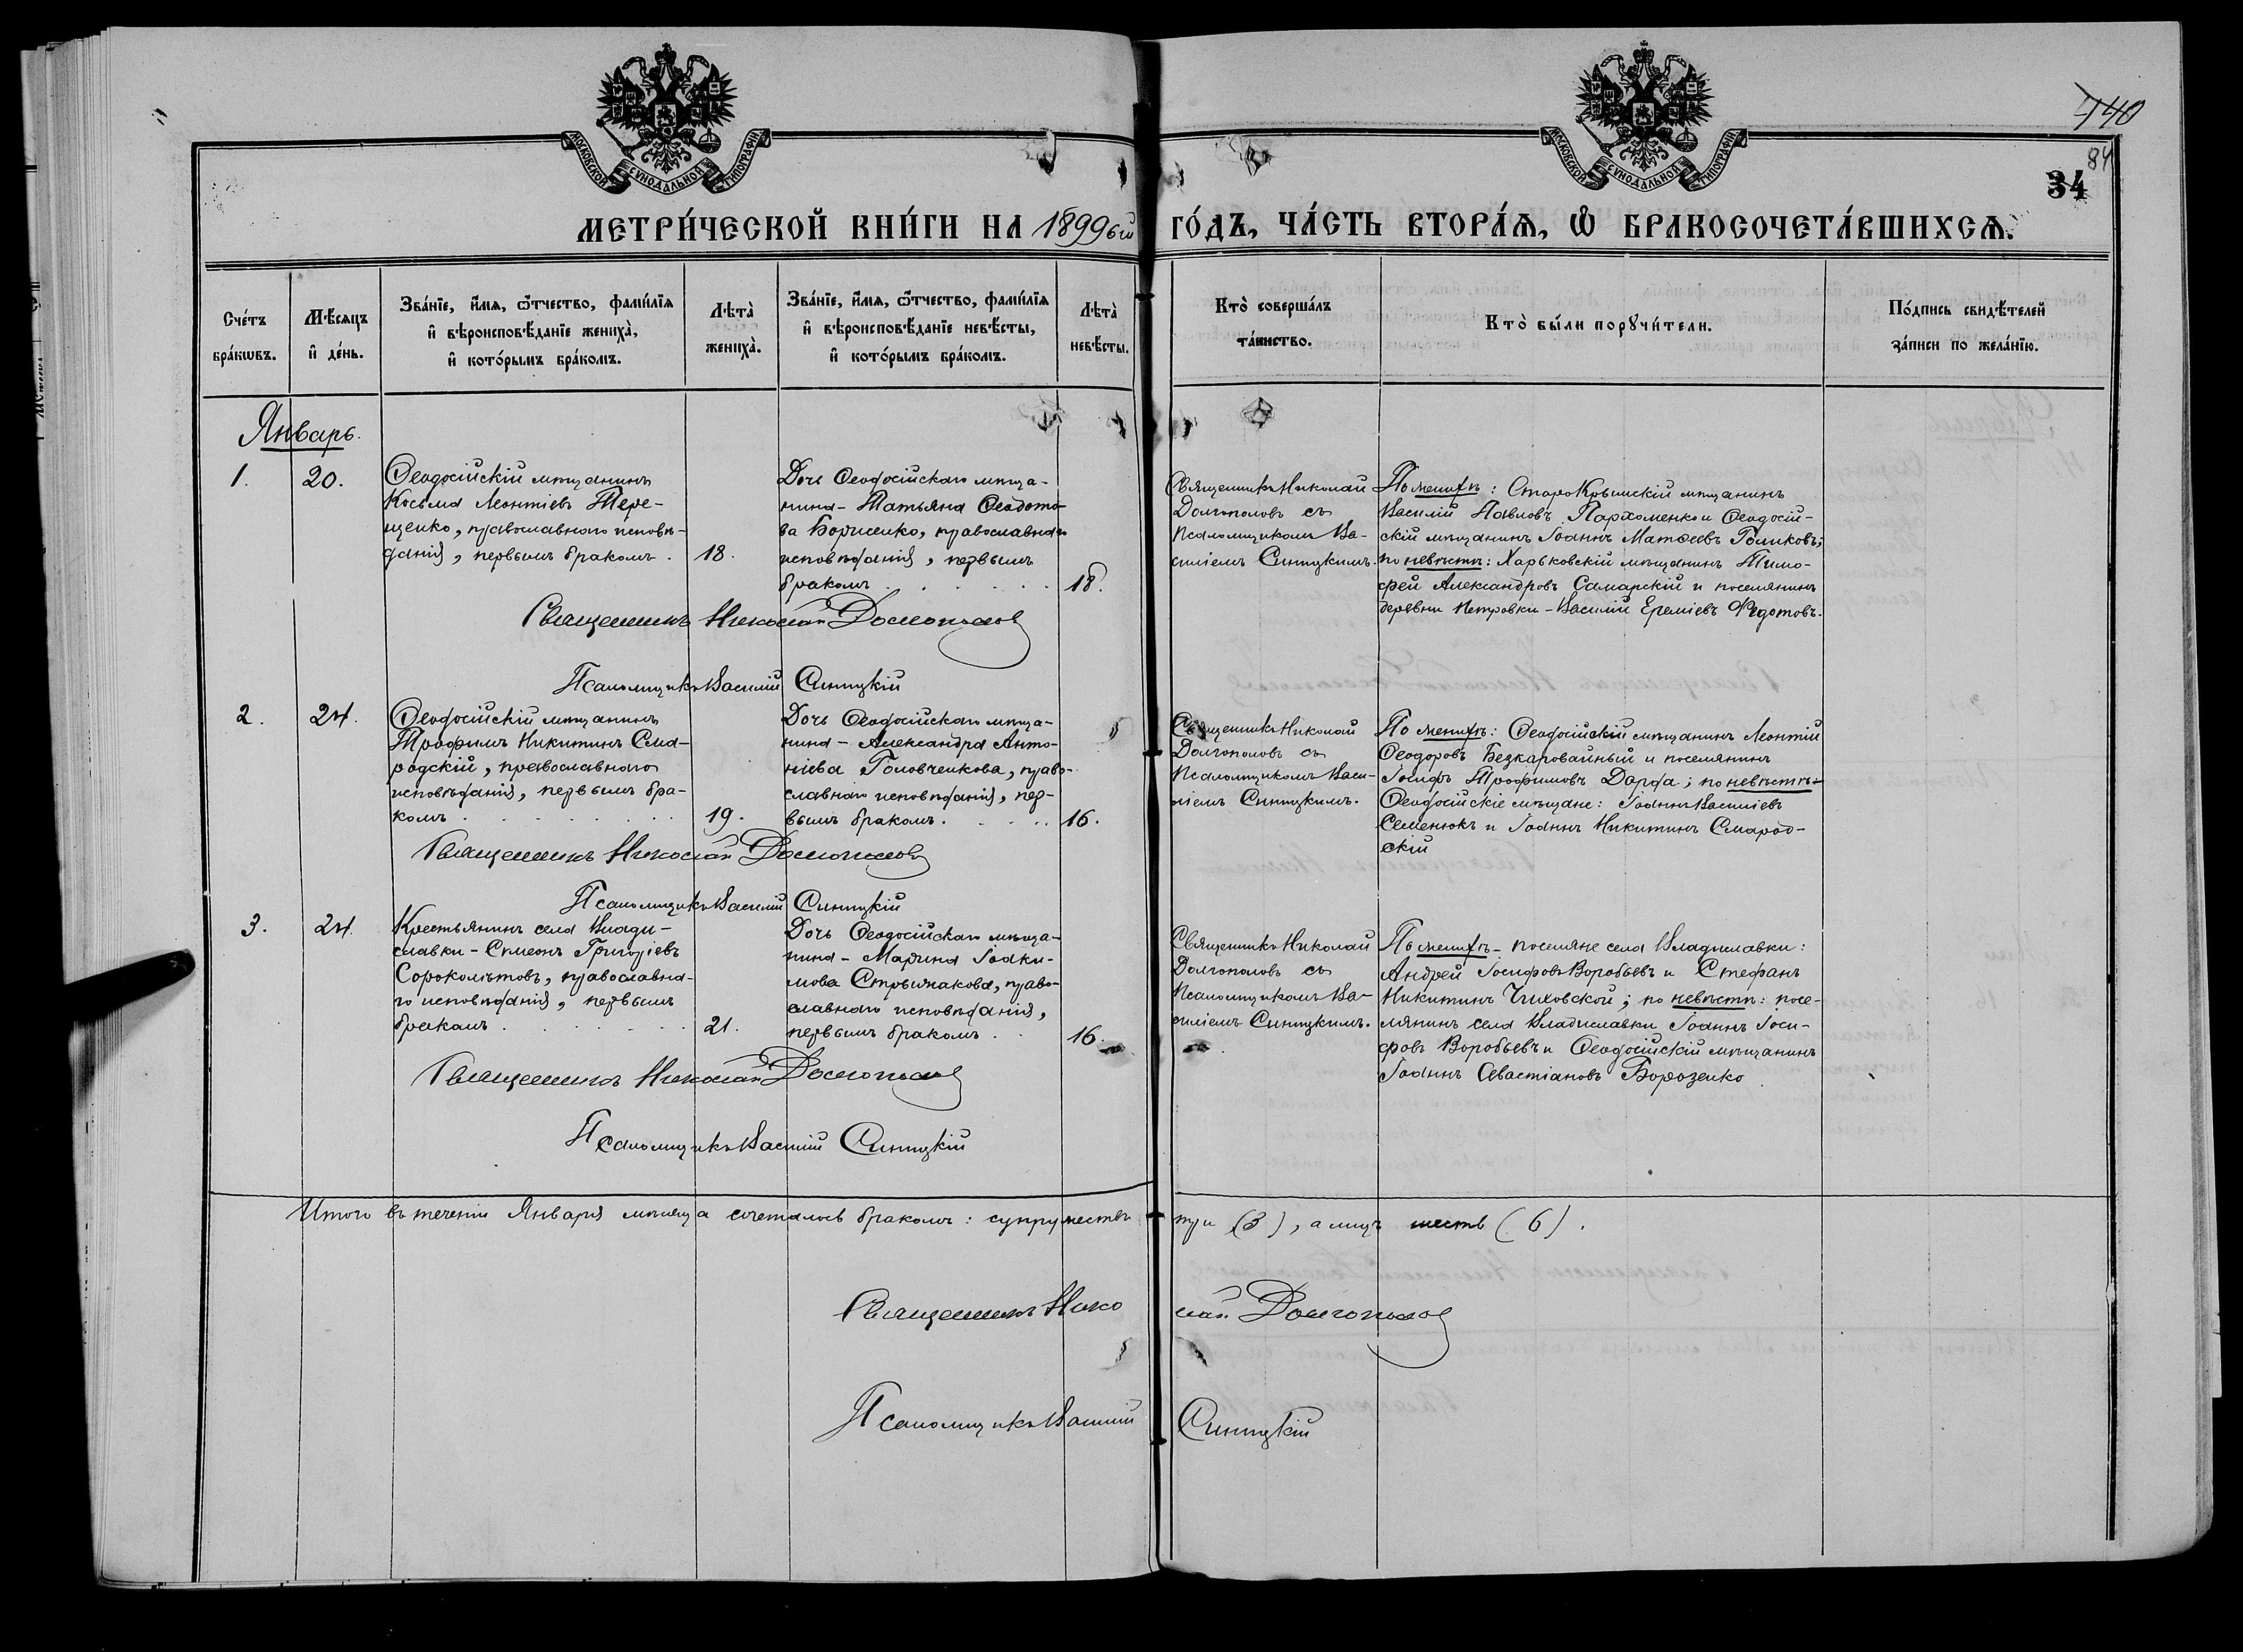 МОСКОВСКОЙ СѴНОДАЛЬНОЙ ТИПОГРАФІИ
МОСКОВСКОЙ СѴНОДАЛЬНОЙ ТИПОГРАФІИ
140
84
34
МЕТРИ́ЧЕСКОЙ КНИ́ГИ НА 1899ый ГО́ДЪ, ЧА́СТЬ ВТОРА́Ѧ, Ѡ БРАКОСОЧЕТА́ВШИХСѦ.
Сче́тъ
бра́кѡвъ.
Мѣ́сяцъ
и҆ де́нь.
Зва́нїе, и҆́мя, ѻ҆́тчество, фами́лїя
и҆ вѣроисповѣ́данїе жениха̀,
и҆ кото́рымъ бра́комъ.
Лѣта̀
жениха̀.
Зва́нїе, и҆́мя, ѻ҆́тчество, фами́лїя
и҆ вѣроисповѣ́данїе невѣ́сты,
и҆ кото́рымъ бра́комъ.
Лѣта̀
невѣ́сты.
Кто̀ соверша́лъ
та́инство.
Кто̀ бы́ли порꙋчи́тели.
По́дпись свидѣ́телей
за́писи по жела́нїю.
Январь.
1.
20.
Ѳеодосійскій мѣщанинъ
Косьма Леонтіевъ Тере-
щенко, православнаго исповѣ-
данія, первымъ бракомъ.
18.
Дочь Ѳеодосійскаго мѣща-
нина - Татьяна Ѳеодото-
ва Борисенко, православнаго
исповѣданія, первымъ
бракомъ
18.
Священникъ Николай
Долгополовъ съ
Псаломщикомъ Ва-
силіемъ Синицкимъ.
По женихѣ: СтароКрымскій мѣщанинъ
Василій Павловъ Пархоменко и Ѳеодосій-
скій мѣщанинъ Іоаннъ Матѳеевъ Голиковъ;
по невѣстѣ: Харьковскій мѣщанинъ Тимо-
фей Александровъ Самарскій и поселянинъ
деревни Петровки - Василій Ереміевъ Ѳедотовъ.
Священникъ Николай Долгополовъ
Псаломщикъ Василій Синицкій
2.
24.
Ѳеодосійскій мѣщанинъ
Трофимъ Никитинъ Сма-
родскій, православнаго
исповѣданія, первымъ бра-
комъ
19.
Дочь Ѳеодосійскаго мѣща-
нина - Александра Анто-
ніева Головченкова, право-
славнаго исповѣданія, пер-
вымъ бракомъ.
16.
Священникъ Николай
Долгополовъ съ
Псаломщикомъ Васи-
ліемъ Синицкимъ.
По женихѣ: Ѳеодосійскій мѣщанинъ Леонтій
Ѳеодоровъ Безкаровайный и поселянинъ
Іосифъ Трофимовъ Дарфа; по невѣстѣ:
Ѳеодосійскіе мѣщане: Іоаннъ Василіевъ
Семенюкъ и Іоаннъ Никитинъ Смарод-
скій
Священникъ Николай Долгополовъ
Псаломщикъ Василій Синицкій
3.
24.
Крестьянинъ села Влади-
славки - Симеонъ Григоріевъ
Сороколѣтовъ, православна-
го исповѣданія, первымъ
бракомъ
21.
Дочь Ѳеодосійскаго мѣща-
нина - Марина Іоаки-
мова Стрыжакова, право-
славнаго исповѣданія,
первымъ бракомъ.
16.
Священникъ Николай
Долгополовъ съ
Псаломщикомъ Ва-
силіемъ Синицкимъ.
По женихѣ - поселяне села Владиславки:
Андрей Іосифовъ Воробьевъ и Стефанъ
Никитинъ Чиховской; по невѣстѣ: посе-
лянинъ села Владиславки Іоаннъ Іоси-
фовъ Воробьевъ и Ѳеодосійскій мѣщанинъ
Іоаннъ Севастіановъ Борозенко
Священникъ Николай Долгополовъ
Псаломщикъ Василій Синицкій
Итого въ теченіи Января мѣсяца сочеталось бракомъ: супружествъ три (3), а лицъ шесть (6).
Священникъ Николай Долгополовъ
Псаломщикъ Василій Синицкій